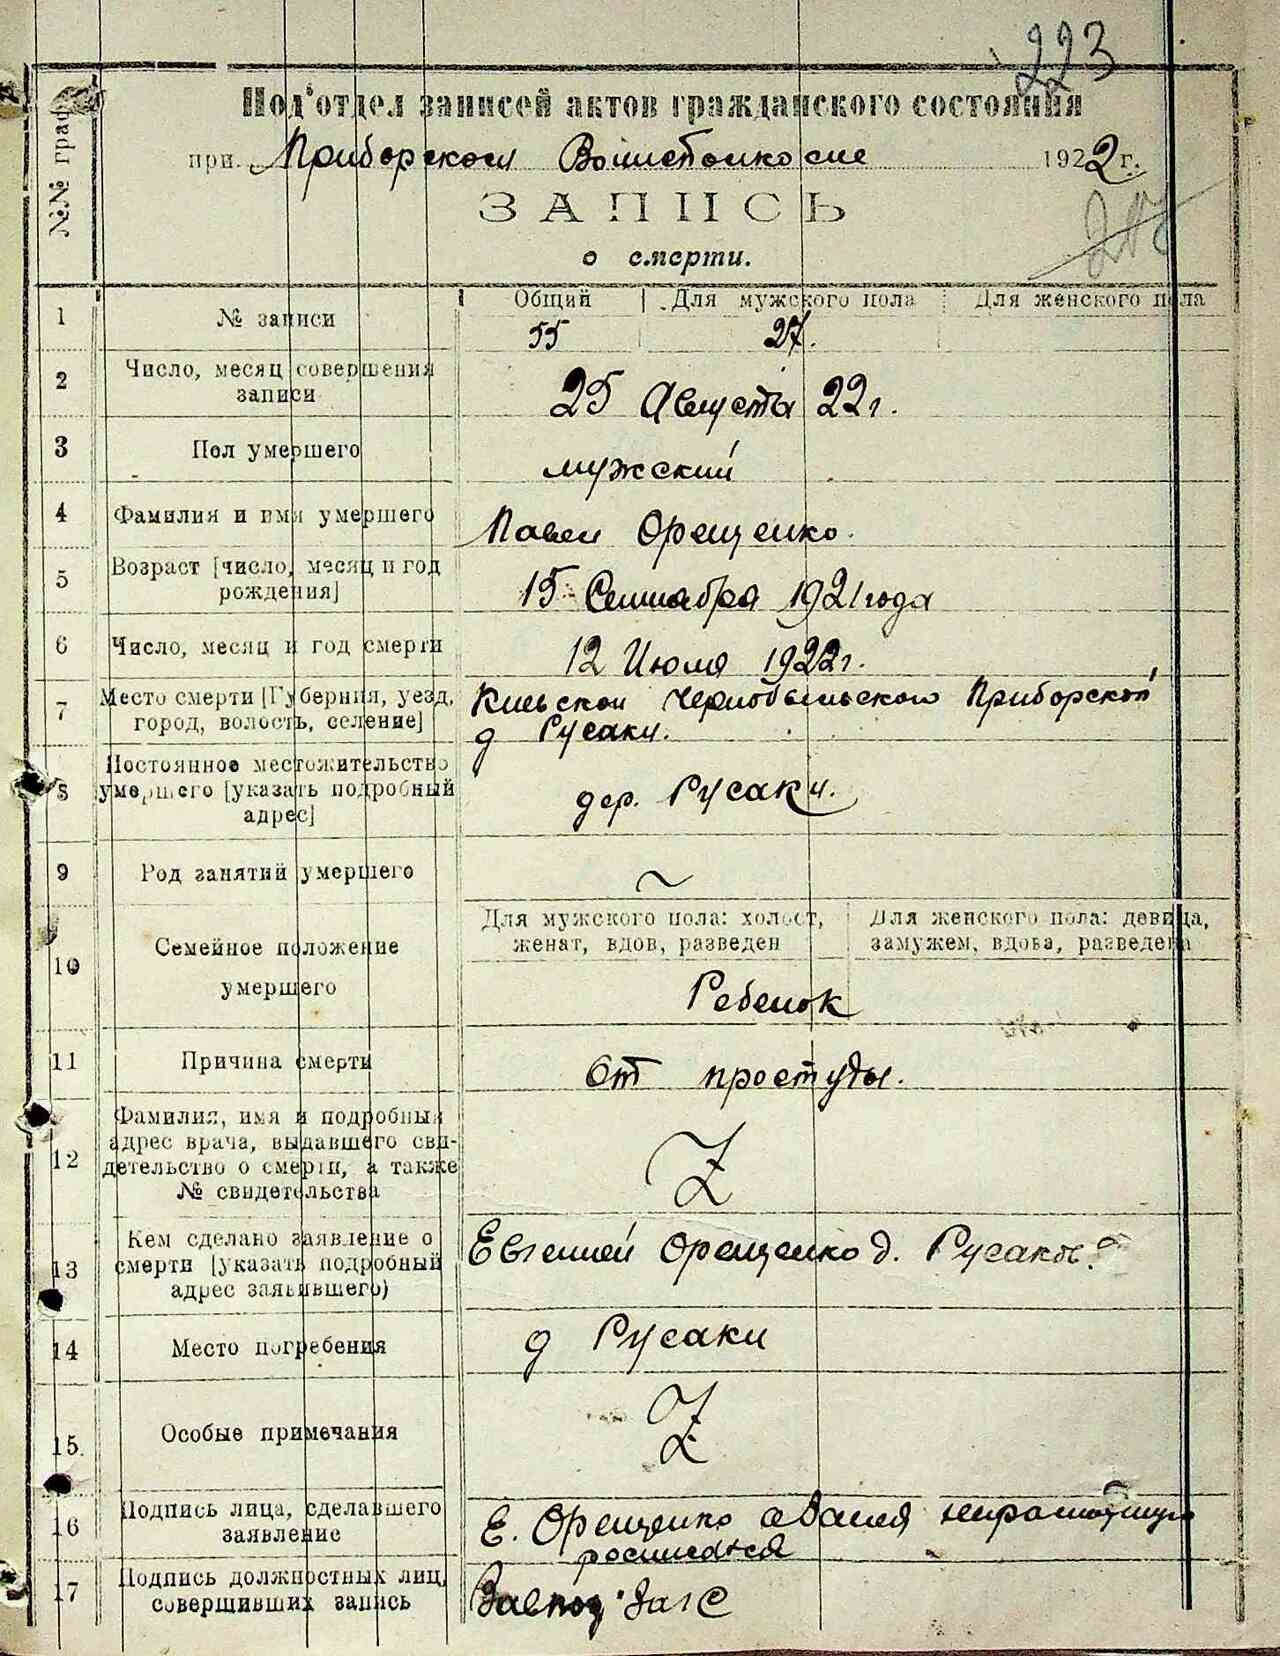 223
Под'отдел записей актов гражданского состояния
при Приборском Волисполкоме 1922 г.
ЗАПИСЬ
о смерти.
№№ граф
1 № записи Общий Для мужского пола Для женского пола
55 27.
2 Число, месяц совершения записи
25 Августа 22 г.
3 Пол умершего
мужский
4 Фамилия и имя умершего
Павел Орещенко.
5 Возраст [число, месяц и год рождения]
15 Сентабра 1921 года
6 Число, месяц и год смерти
12 Июля 1922 г.
7 Место смерти [Губерния, уезд, город, волость, селение]
Киевской Чернобыльского Приборской
д Русаки.
8 Постоянное местожительство умершего [указать подробный адрес]
дер. Русаки.
9 Род занятий умершего
10 Семейное положение умершего
Для мужского пола: холост, женат, вдов, разведен
Для женского пола: девица, замужем, вдова, разведена
Ребенок
11 Причина смерти
От простуды.
12 Фамилия, имя и подробный адрес врача, выдавшего сви-
детельство о смерти, а также № свидетельства
Z
13 Кем сделано заявление о смерти [указать подробный адрес заявившего)
Евгенией Орещенко д. Русаки.
14 Место погребения
д Русаки
15. Особые примечания
Z
16 Подпись лица, сделавшего заявление
Е. Орещенко
росписатся
17 Подпись должностных лиц, совершивших запись
Завпод Загс